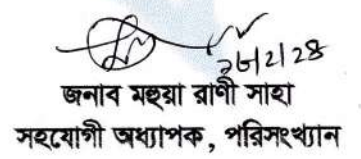 ২৮/2/28
জনাব মহুয়া রাণী সাহা
সহযোগী অধ্যাপক, পরিসংখ্যান